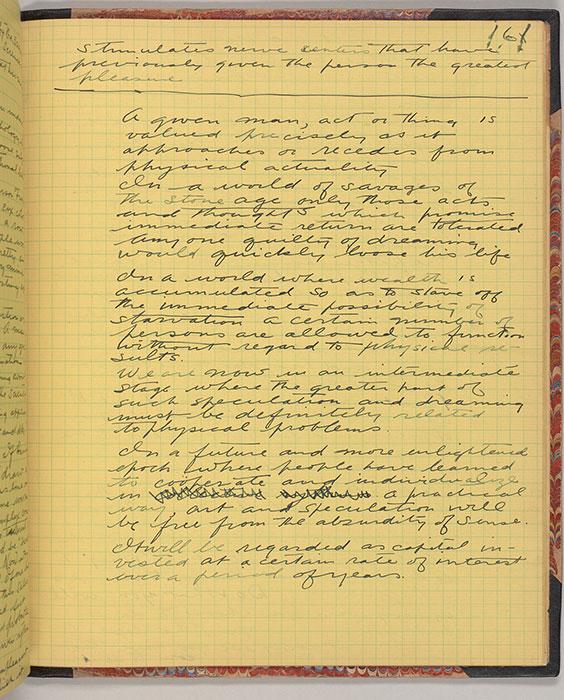 161
Stimulates nerve centers that have
previously given the person the greatest
pleasure
A given man, act or thing is
valued precisely as it
approaches or recedes from
physical actuality
In a world of savages of
the stone age only those acts
and thoughts which promise
immediate return are tolerated
Any one guilty of dreaming
would quickly loose his life
In a world where wealth is
accumulated so as to stave off
the immediate possibility of
starvation a certain number of
persons are allowed to function
without regard to physical re-
sults.
We are now in an intermediate
stage where the greater part of
such speculation and dreaming
must be definitely related
to physical problems.
In a future and more enlightened
epoch where people have learned
to cooperate and individualize
in a practical
way, art and speculation will
be free from the absurdity of Sense.
It will be regarded as capital in-
vested at a certain rate of interest
over a period of years.